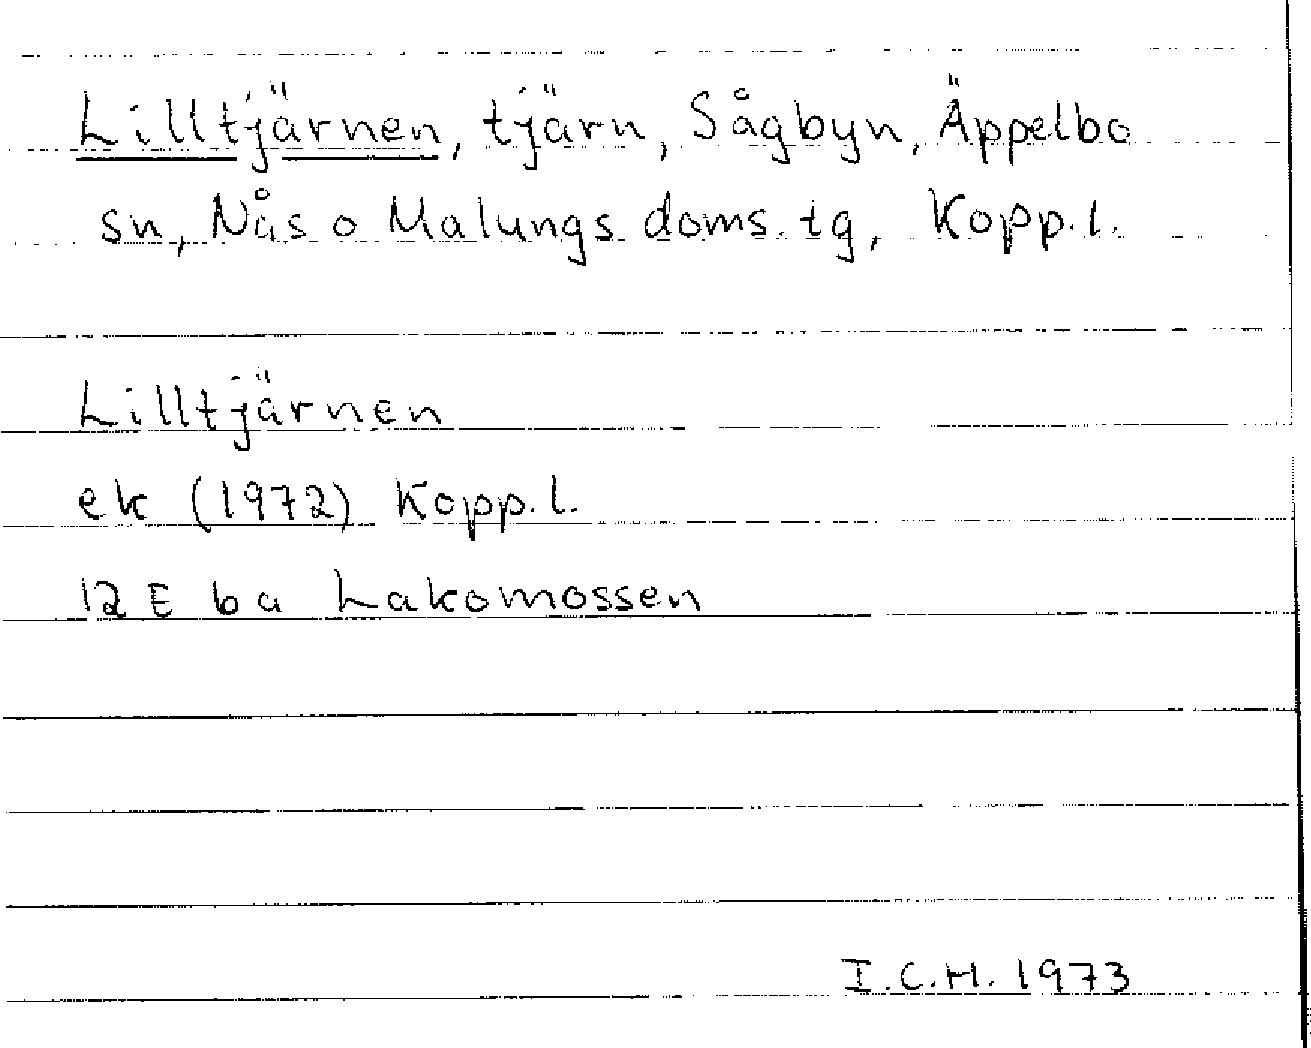 Lilltjärnen, tjärn, Sågbyn, Äppelbo
sn, Nås o Malungs doms. tg, Kopp. l.
Lilltjärnen
ek (1972) Kopp. l.
12 E ba Lakomossen
I.C.H. 1973